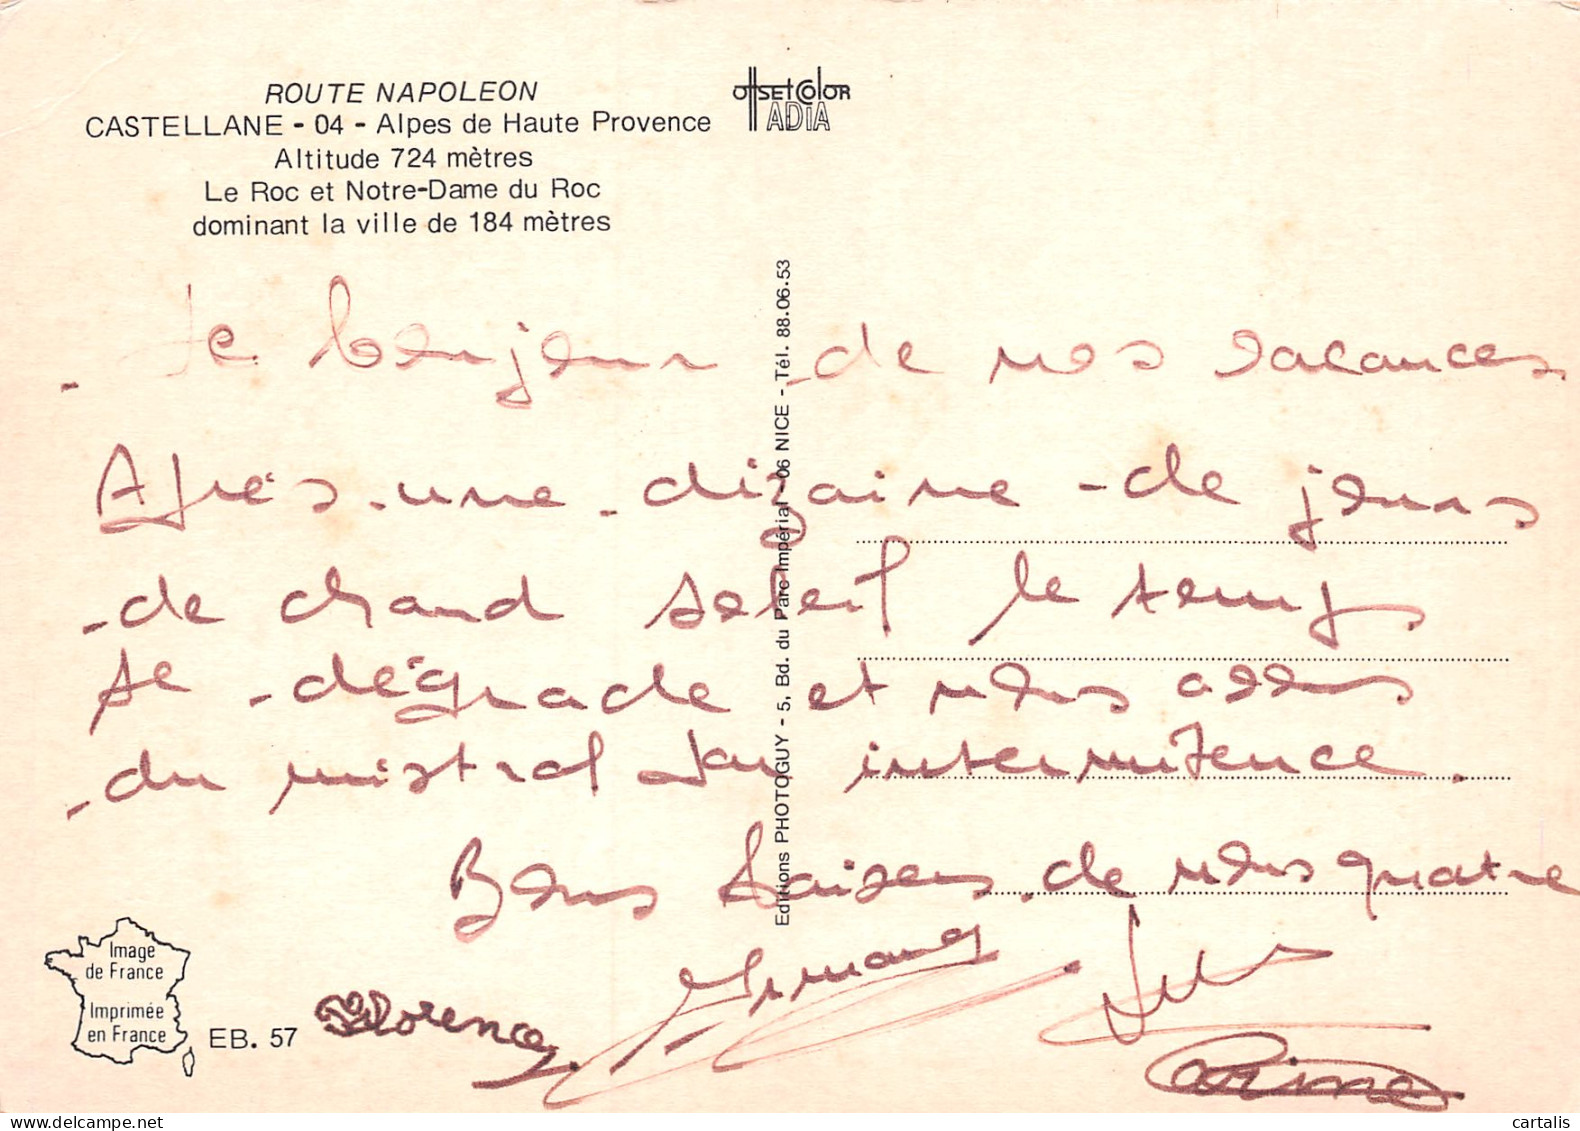 ROUTE NAPOLEON
CASTELLANE - 04 - Alpes de Haute Provence
Altitude 724 mètres
Le Roc et Notre-Dame du Roc
dominant la ville de 184 mètres
OffSEtColoR
ADiA
Le bonjour de nos vacances
Après une dizaine de jours
de chaud soleil le temps
se dégrade et nous avons
du mistral par intermitence.
Bons baisers de nous quatre
Florence
Corinne
Editions PHOTOGUY - 5, Bd. du Parc Impérial - 06 NICE - Tél. 88.06.53
Image
de France
Imprimée
en France
EB. 57
cartalis